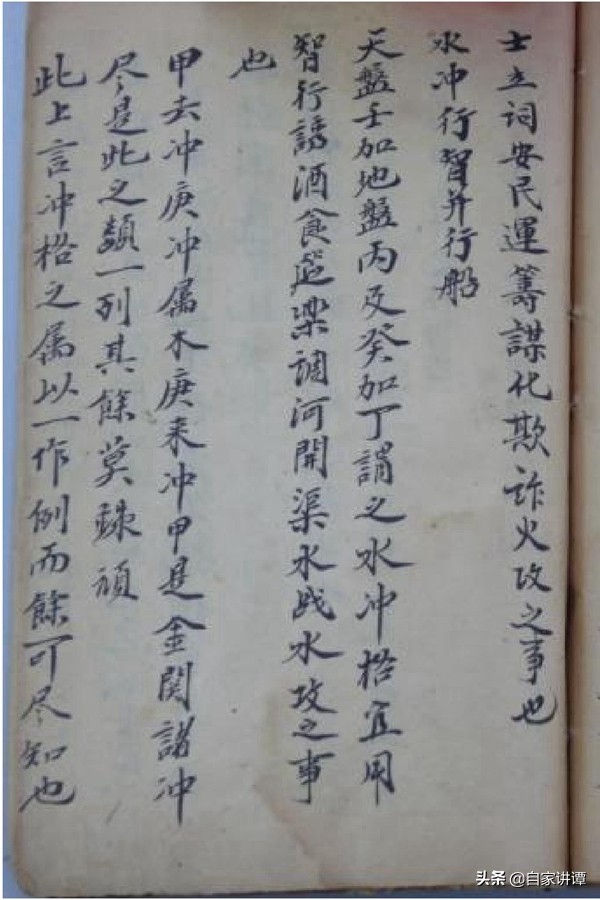 士立词安民運籌謀化欺詐火攻之事也
水冲行智并行船
天盤壬加地盤丙及癸加丁謂之水冲格宜用
智行誘酒食筵樂調河開渠水战水攻之事
也
甲去冲庚冲属木庚来冲甲是金関諸冲
尽是此之類一列其餘莫録頑
此上言冲格之属以一作例而餘可尽知也
头条 @自家讲谭